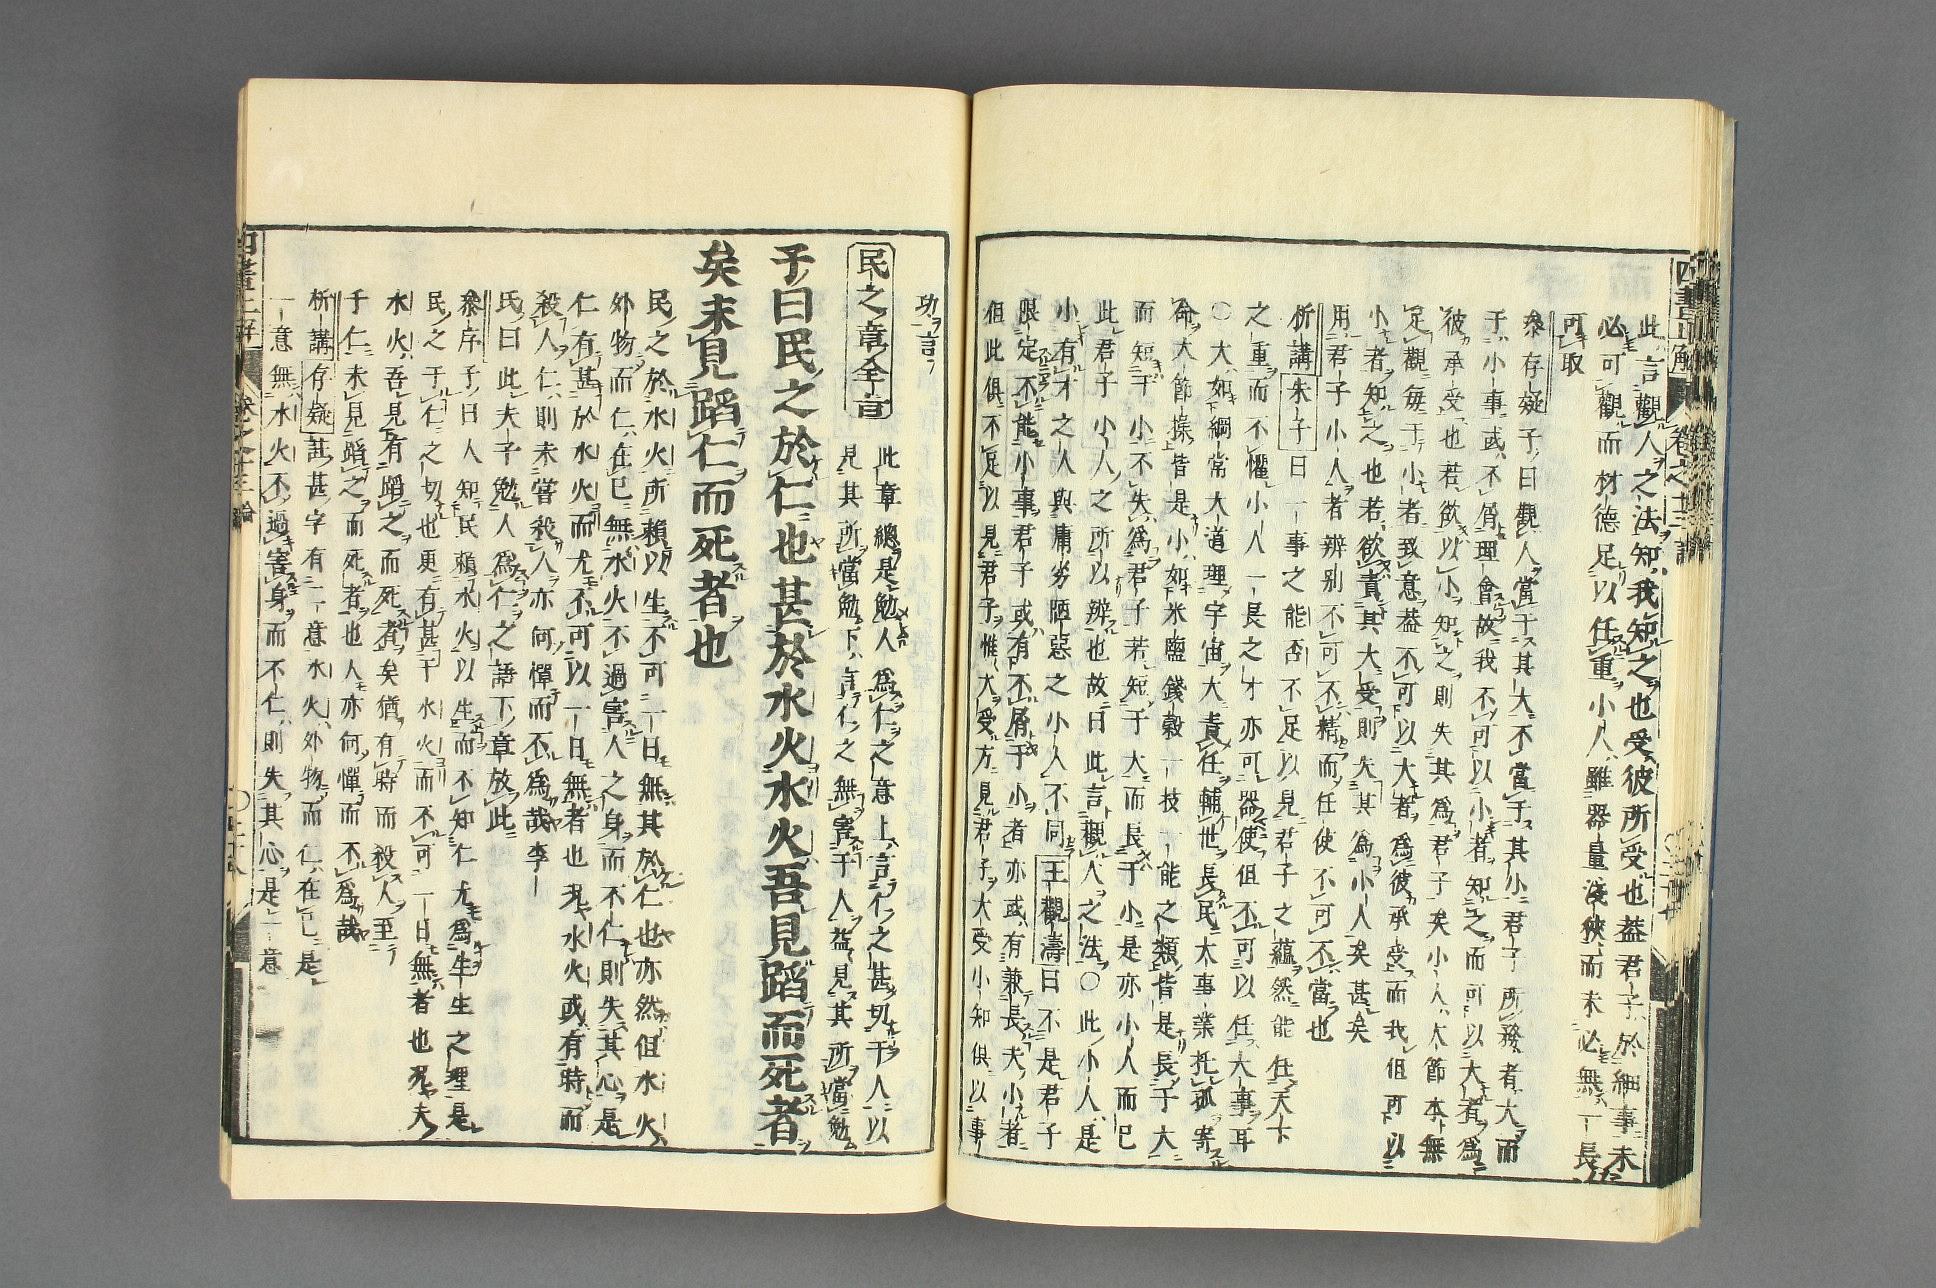 此言觀人之法知我知之也受彼所受也蓋君子於細事未
必可觀而材德足以任重小人雖器量淺狹而未必無一長
可取
參存疑子曰觀人當于其大不當于其小君子所務者大而
于小事或不屑理會故我不可以小者知之而可以大者爲
彼承受也若欲以小知之則失其爲君子矣小人大節本無
足觀毎于小者致意蓋不可以大者爲彼承受而我但可以
小者知之也若欲責其大受則失其爲小人矣甚矣
用君子小人者辨别不可不精而任使不可不當也
析講朱子曰一事之能否不足以見君子之蘊然能任天下
之重而不懼小人一長之才亦可器使但不可以任大事耳
○大如綱常大道理宇宙大責任輔世長民大事業托孤寄
命大節操皆是小如米鹽錢穀一技一能之類皆是長于大
而短于小不失爲君子若短于大而長于小是亦小人而已
此君子小人之所以辨也故曰此言觀人之法○此小人是
小有才之人與庸劣陋惡之小人不同王觀濤曰不是君子
限定不能小事君子或有不屑于小者亦或有兼長夫小者
但此俱不足以見君子惟大受方見君子大受小知俱以事
功言
民之章全旨
此章總是勉人爲仁之意上言仁之甚切于人以
見其所當勉下言仁之無害于人益見其所當勉
子曰民之於仁也甚於水火水火吾見蹈而死者
矣未見蹈仁而死者也
民之於水火所賴以生不可一日無其於仁也亦然但水火
外物而仁在己無水火不過害人之身而不仁則失其心是
仁有甚於水火而尤不可以一日無者也况水火或有時而
殺人仁則未嘗殺人亦何憚而不爲哉李
氏曰此夫子勉人爲仁之語下章放此
參序子曰人知民賴水火以生而不知仁尤爲生生之理是
民之于仁之切也更有甚于水火而不可一日無者也况夫
水火吾見有蹈之而死者矣猶有時而殺人至
于仁未見蹈之而死者也人亦何憚而不爲哉
析講存疑註甚字有二意水火外物而仁在己是
一意無水火不過害身而不仁則失其心是一意